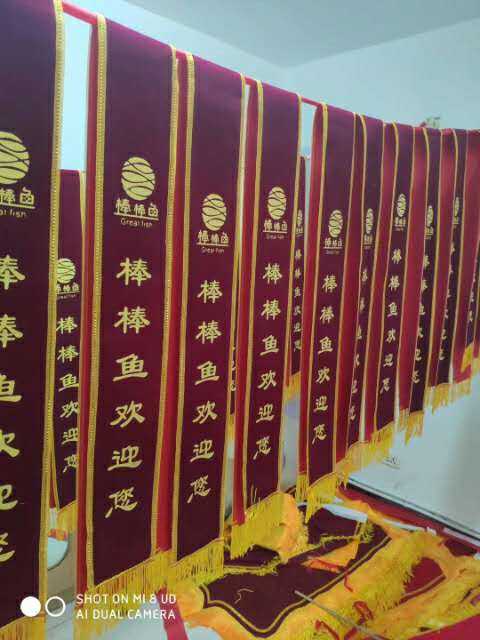 棒棒鱼
Great fish
棒棒鱼欢迎您
棒棒鱼
Great fish
棒棒鱼欢迎您
棒棒鱼
Great fish
棒棒鱼欢迎您
棒棒鱼
Great fish
棒棒鱼欢迎您
棒棒鱼
Great fish
棒棒鱼欢迎您
棒棒鱼欢迎您
棒棒鱼欢迎您
棒棒鱼欢迎您
SHOT ON MI 8 UD
AI DUAL CAMERA